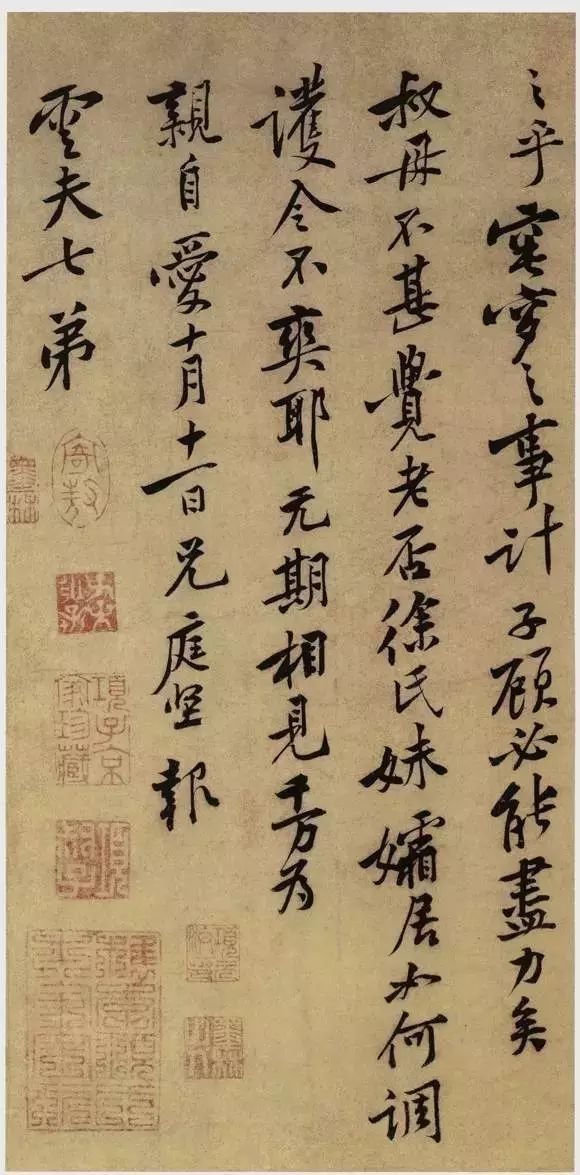 之乎窀穸之事計子顧必能盡力矣
叔母不甚覺老否徐氏妹孀居如何調
護令不爽耶無期相見千万为
親自愛十月十一日兄庭坚報
雲夫七弟
項子京家珍藏